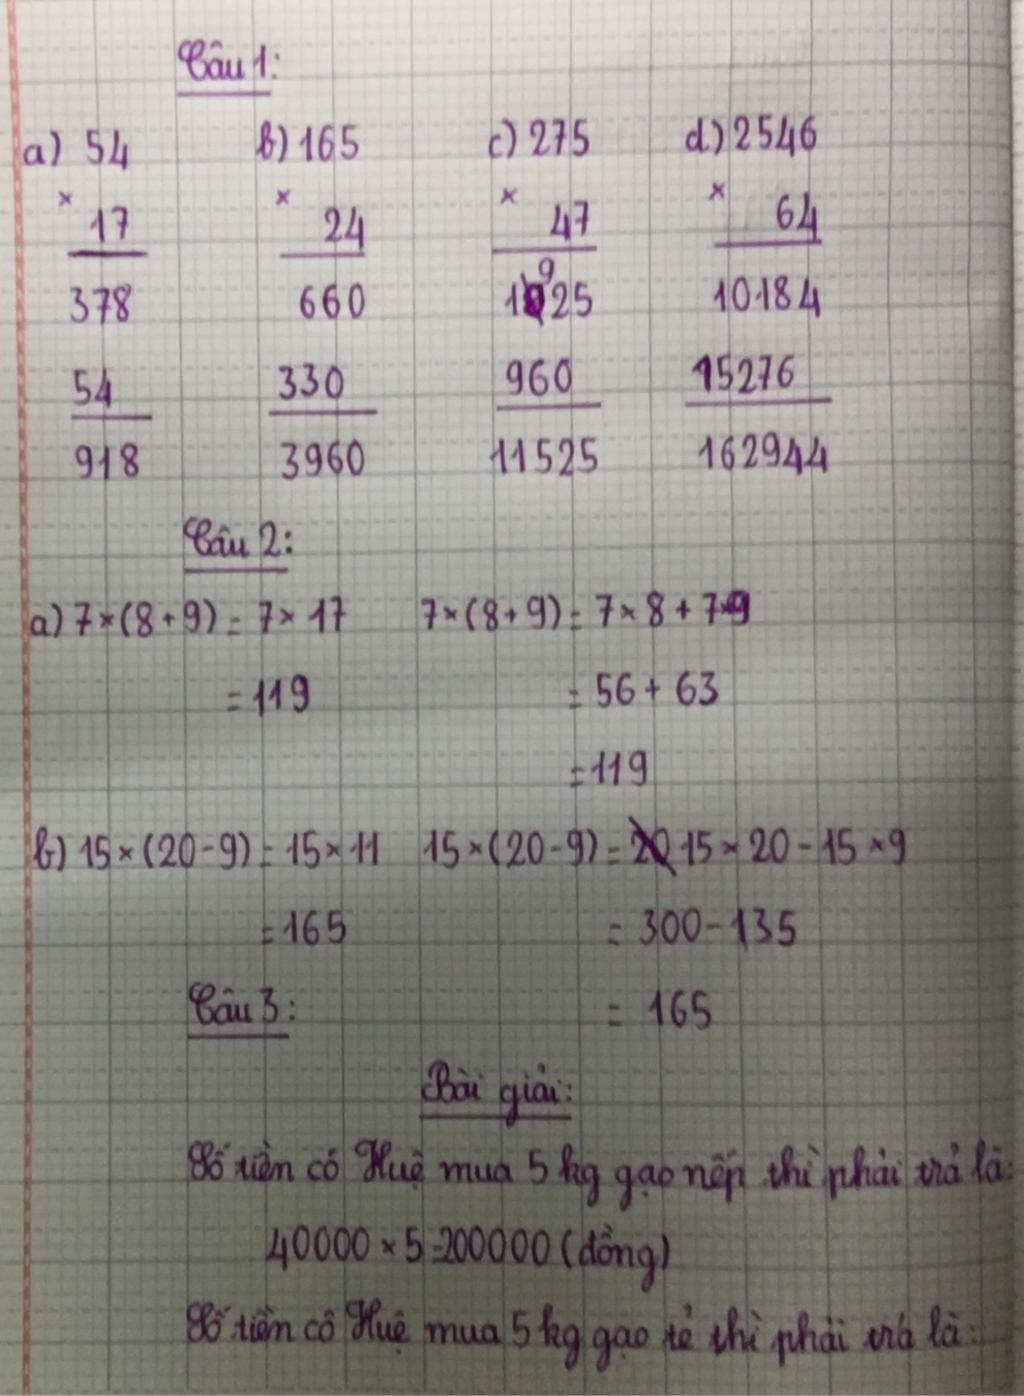 Câu 1:
a) 54 b) 165 c) 275 d) 2546
× 17 × 24 × 47 × 64
378 660 1925 10184
54 330 960 15276
918 3960 11525 162944
Câu 2:
a) 7×(8+9) = 7×17 7×(8+9) = 7×8+7×9
=119 = 56 + 63
=119
b) 15×(20-9) = 15×11 15×(20-9) = 15×20-15×9
=165 = 300-135
Câu 3: = 165
Bài giải:
Số tiền cô Huệ mua 5 kg gạo nếp thì phải trả là:
40000×5=200000 (đồng)
Số tiền cô Huệ mua 5 kg gạo tẻ thì phải trả là: